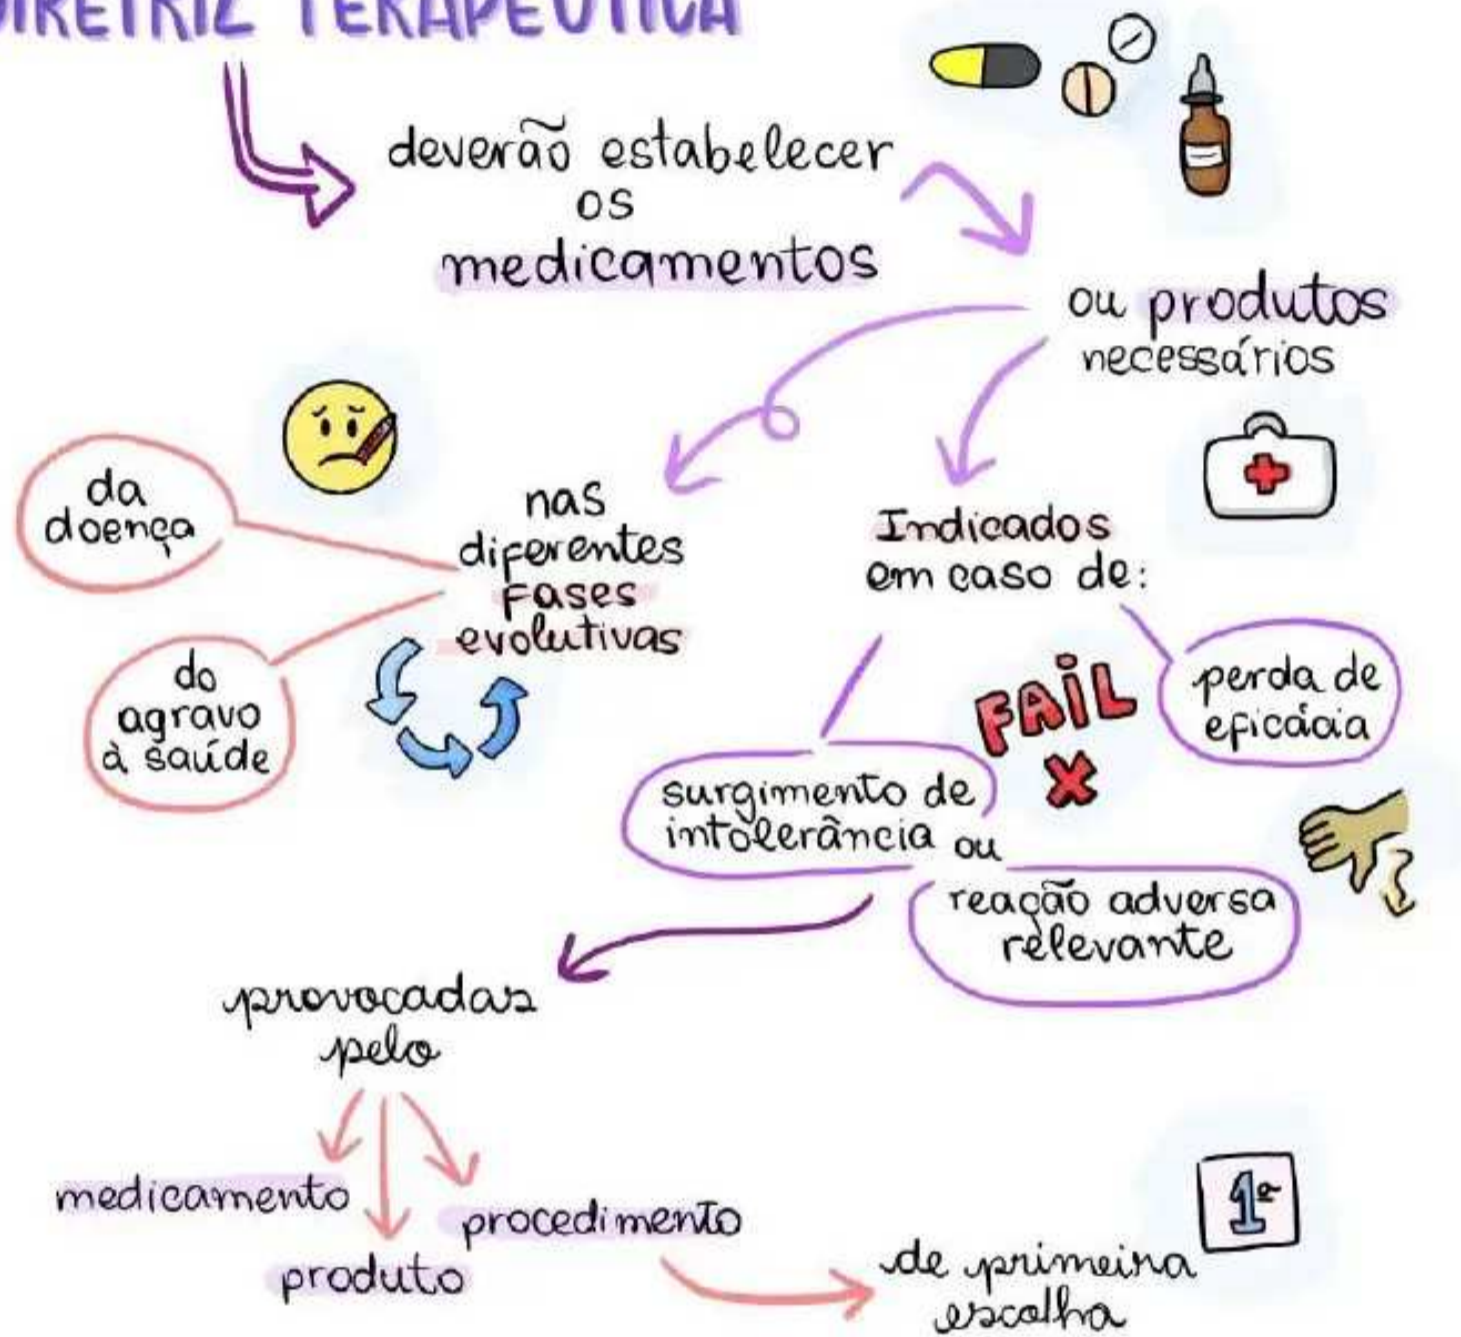 DIRETRIZ TERAPÊUTICA
deverão estabelecer
os
medicamentos
ou produtos
necessários
da
doença
nas
diferentes
fases
evolutivas
do
agravo
à saúde
Indicados
em caso de:
FAIL
perda de
eficácia
surgimento de
intolerância ou
reação adversa
relevante
provocadas
pelo
medicamento
produto
procedimento
1ª
de primeira
escolha